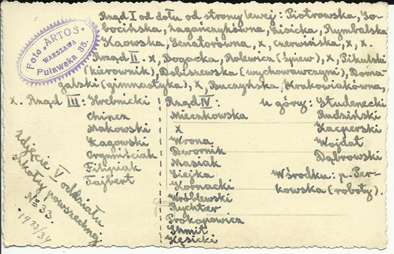 Foto „ARTOS”
WARSZAWA
Puławska 35.
Rząd I od dołu od strony lewej: Piotrowska, So-
bocińska, Zagańczykówna, Lisicka, Rymbalska
Kasowska, Senatorówna, x, Czerwińska, x, x.
Rząd II. x, Bogocka, Rolewicz (śpiew), x, Pikulski
(kierownik), Dobiszewska (wychowawczyni), Doma-
galski (gimnastyka), x, Buczyńska, Krakowiakówna,
x. Rząd III: Hrebnicki
Chincz
Makowski
Kagowski
Organiściak
Filipiak
Tajbert
Rząd IV:
Mierzkowska
x
Wrona
Dwornik
Masiak
Siejka
Kornacki
Wróblewski
Rychter
Prokopowicz
Shmit
Kęsicki
u góry: Studencki
Rudziński
Kacperski
Wojdat
Dąbrowski
W środku: p. Per-
kowska (roboty).
zdjęcie V oddziału
szkoły powszechnej
No 33.
1933/34